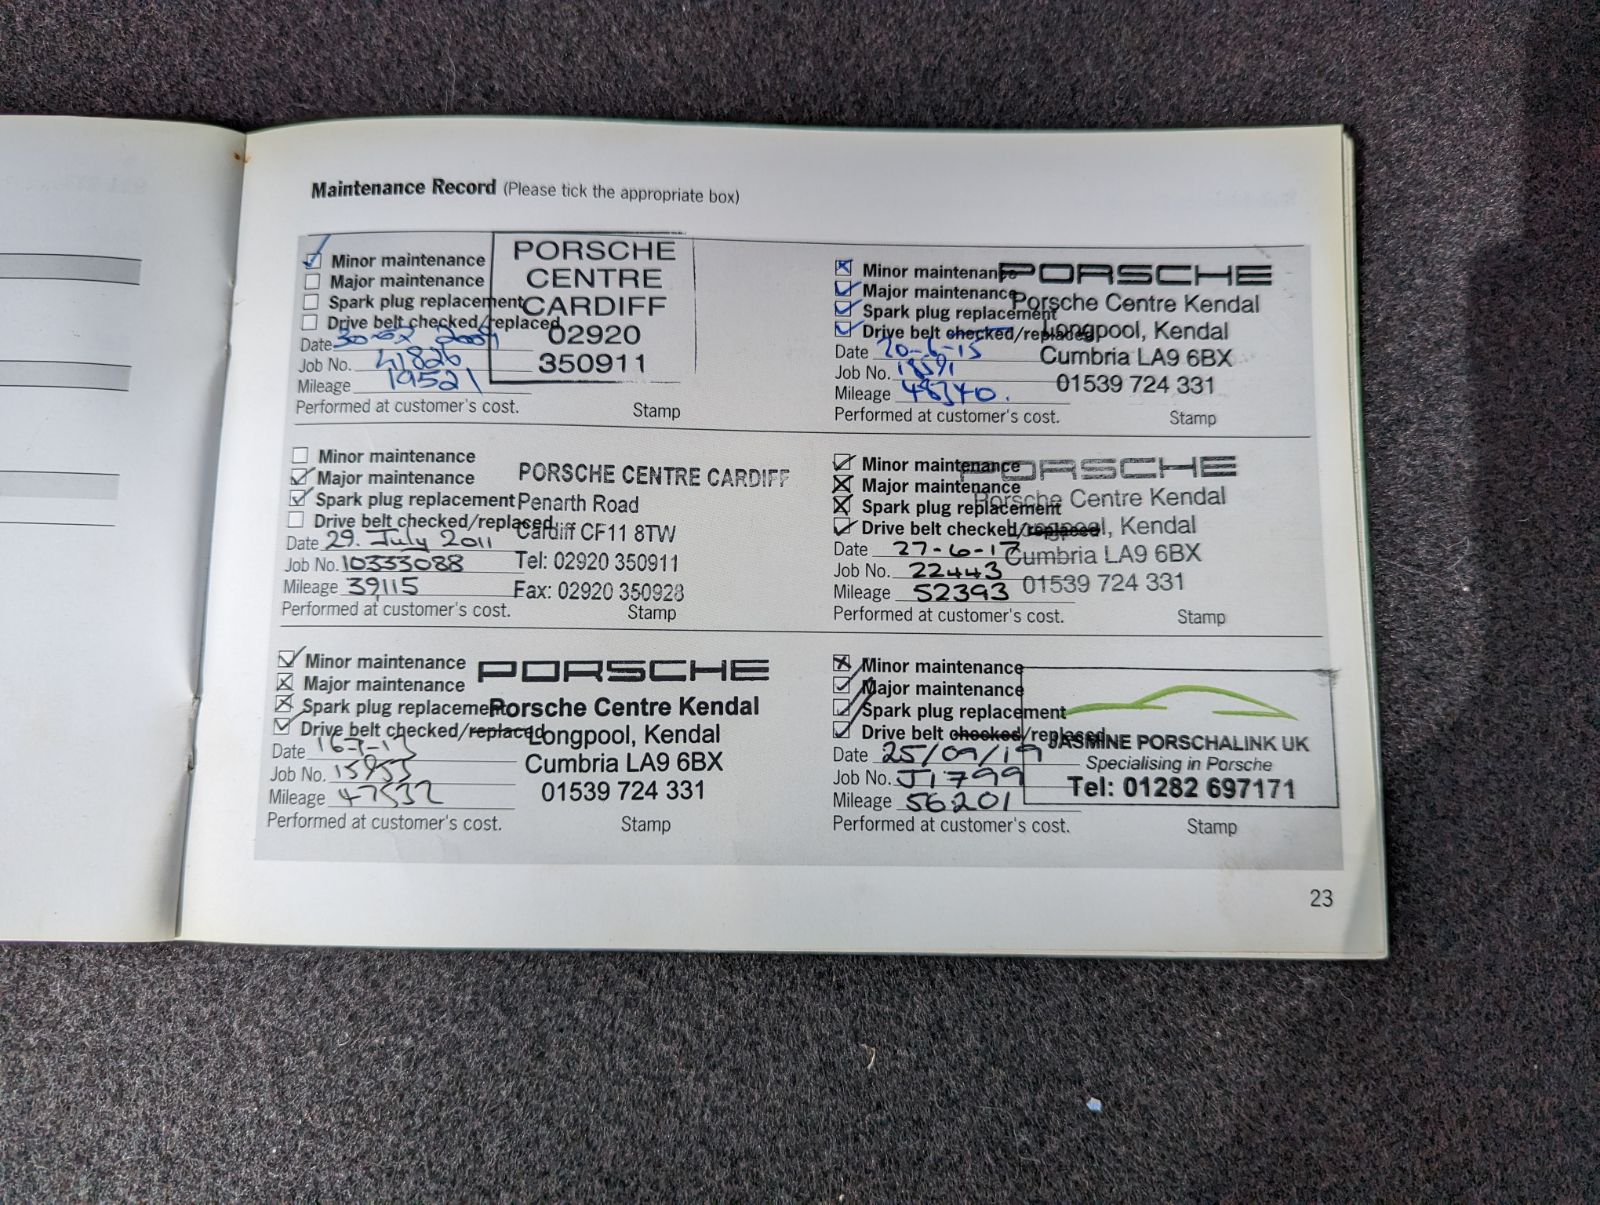 Maintenance Record (Please tick the appropriate box)
Minor maintenance
Major maintenance
Spark plug replacement
Drive belt checked/replaced
Date
Job No. 41826
Mileage 19521
Performed at customer's cost.
PORSCHE
CENTRE
CARDIFF
02920
350911
Stamp
Minor maintenance
Major maintenance
Spark plug replacement
Drive belt checked/replaced
Date 29. July 2011
Job No. 10333088
Mileage 39,115
Performed at customer's cost.
PORSCHE CENTRE CARDIFF
Penarth Road
Cardiff CF11 8TW
Tel: 02920 350911
Fax: 02920 350928
Stamp
Minor maintenance
Major maintenance
Spark plug replacement
Drive belt checked/replaced
Date 16-7-13
Job No.
Mileage
Performed at customer's cost.
PORSCHE
Porsche Centre Kendal
Longpool, Kendal
Cumbria LA9 6BX
01539 724 331
Stamp
Minor maintenance
Major maintenance
Spark plug replacement
Drive belt checked/replaced
Date 20-6-15
Job No.
Mileage 48340.
Performed at customer's cost.
PORSCHE
Porsche Centre Kendal
Longpool, Kendal
Cumbria LA9 6BX
01539 724 331
Stamp
Minor maintenance
Major maintenance
Spark plug replacement
Drive belt checked/replaced
Date 27-6-17
Job No. 22443
Mileage 52393
Performed at customer's cost.
PORSCHE
Porsche Centre Kendal
Longpool, Kendal
Cumbria LA9 6BX
01539 724 331
Stamp
Minor maintenance
Major maintenance
Spark plug replacement
Drive belt checked/replaced
Date 25/09/19
Job No. J1799
Mileage 56201
Performed at customer's cost.
JASMINE PORSCHALINK UK
Specialising in Porsche
Tel: 01282 697171
Stamp
23